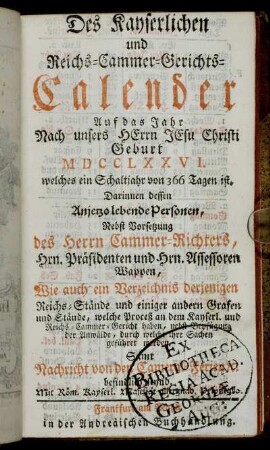 Des Kayserlichen
und
Reichs-Cammer-Gerichts-
Calender
Auf das Jahr
Nach unsers HErrn JEsu Christi
Geburt
MDCCLXXVI.
welches ein Schaltjahr von 366 Tagen ist.
Darinnen dessen
Anjetzo lebende Personen,
Nebst Vorsetzung
des Herrn Cammer-Richters,
Hrn. Präsidenten und Hrn. Assessoren
Wappen,
Wie auch ein Verzeichnis derjenigen
Reichs-Stände und einiger andern Grafen
und Stände, welche Proceß an dem Kayserl. und
Reichs-Cammer-Gericht haben, nebst
der Anwälde, durch welche ihre Sachen
geführet werden,
Samt
Nachricht von der Cammer Ferien
befindlich sind.
Mit Röm. Kayserl.
Frankfurt am
in der Andreäischen Buchhandlung.
EX
BIBLIOTHECA
REGIA ACAD.
GEORGIÆ
AUG.